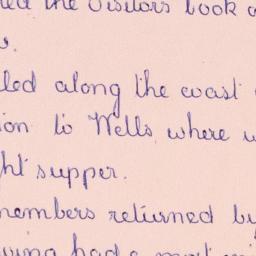 the Visitors book
led along the coast
ion to Wells, where w
ht supper.
members returned by
had a most